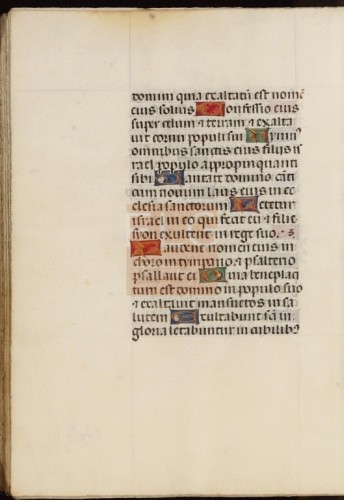 domini quia exaltatū est nomē
eius solius Confessio eius
super celum & terram & exalta
uit cornu populi sui Hymn9
omnibus sanctis eius filiis is
rael populo appropinquanti
sibi Cantate domino cāti
cum nouum laus eius in ec
clesia sanctorum Letetur
israel in eo qui fecit eū & filie
syon exultent in rege suo. s.
Laudent nomen eius in
choro in tympano & psalterio
psallant ei Quia beneplaci
tum est domino in populo suo
& exaltauit mansuetos in sa
lutem Exultabunt scī in
gloria letabuntur in cubilib9